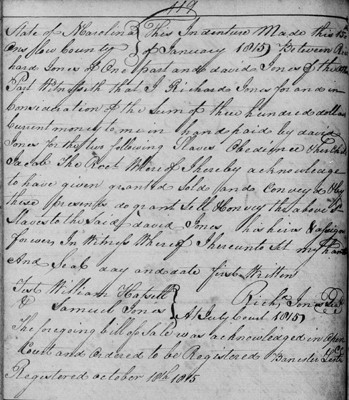 State of N Carolina } This Indenture Made this
Onslow County } of January 1815 Between Rich
hard Jones of One part and david Jones of the other
Part Witnesseth that I Richard Jones for and in
Consideration of the Sum of three hundred dollars
Current money to me in hand paid by david
Jones for the two following Slaves Obedience &
the Rect Where of I hereby acknowledge
to have given granted Sold and Convey'd & by
these presents do grant Sell & Convey the above
Slaves to the Said david Jones his heirs & assigns
forever In Witness Where of I hereunto Set my hand
And Seal day and date first Written
Test William Hatsell } Richd Jones
& Samuel Jones } At July Court 1815
The foregoing bill of Sale was acknowledged in Open
Court and Ordered to be Registered
Registered october 18th 1815